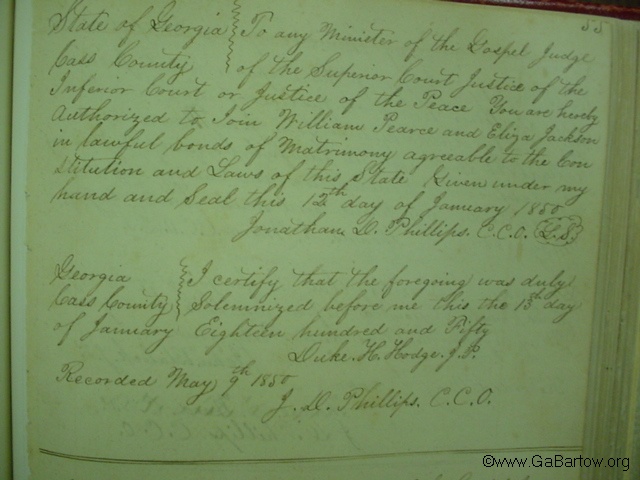 55
State of Georgia } To any Minister of the Gospel Judge
Cass County } of the Superior Court Justice of the
Inferior Court or Justice of the Peace You are hereby
Authorized to Join William Pearce and Eliza Jackson
in lawful bonds of Matrimony agreeable to the Con
stitution and Laws of this State Given under my
hand and Seal this 12th day of January 1850
Jonathan D. Phillips. C.C.O. L.S.
Georgia } I certify that the foregoing was duly
Cass County } Solemnized before me this the 13th day
of January Eighteen hundred and Fifty
Duke. H. Hodge. J.P.
Recorded May 9th 1850
J. D. Phillips. C.C.O.
©www.GaBartow.org